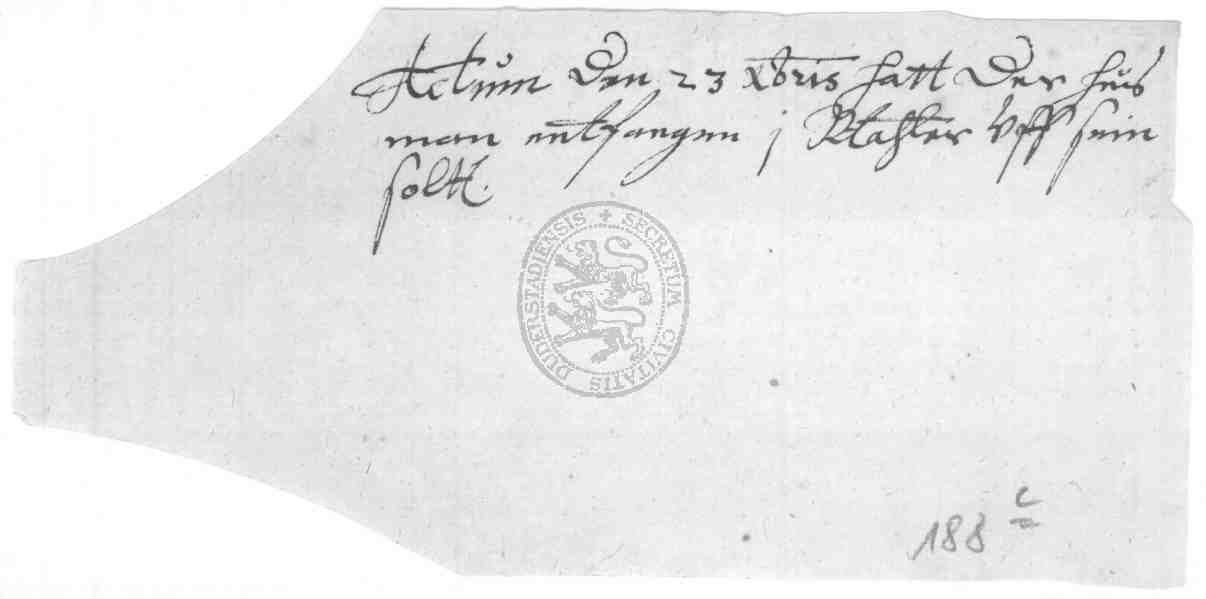 Actum den 23 Xbris hatt der hus
man entfangen j thaler vff sein
soltt.
SECRETUM CIVITATIS DUDERSTADIENSIS
188 c